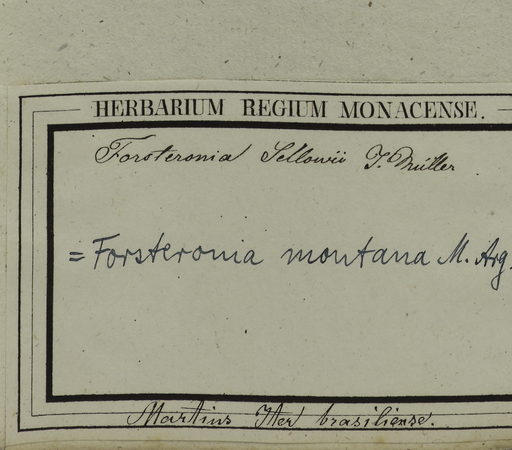 HERBARIUM REGIUM MONACENSE.
Forsteronia Sellowii J. Müller
= Forsteronia montana M. Arg.
Martius Iter brasiliense.